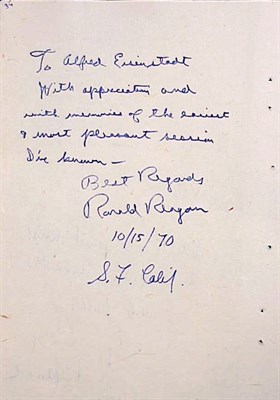 To Alfred Eisenstadt
With appreciation and
with memories of the easiest
& most pleasant session
I've known –
Best Regards
Ronald Reagan
10/15/70
S.F. Calif.